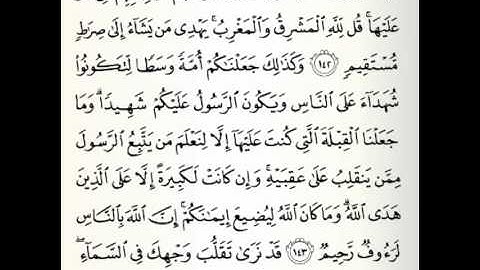 عَلَيْهَا ۚ قُل لِّلَّهِ ٱلْمَشْرِقُ وَٱلْمَغْرِبُ ۚ يَهْدِى مَن يَشَآءُ إِلَىٰ صِرَٰطٍ
مُّسْتَقِيمٍ ١٤٢ وَكَذَٰلِكَ جَعَلْنَٰكُمْ أُمَّةً وَسَطًا لِّتَكُونُوا۟
شُهَدَآءَ عَلَى ٱلنَّاسِ وَيَكُونَ ٱلرَّسُولُ عَلَيْكُمْ شَهِيدًا ۗ وَمَا
جَعَلْنَا ٱلْقِبْلَةَ ٱلَّتِى كُنتَ عَلَيْهَآ إِلَّا لِنَعْلَمَ مَن يَتَّبِعُ ٱلرَّسُولَ
مِمَّن يَنقَلِبُ عَلَىٰ عَقِبَيْهِ ۚ وَإِن كَانَتْ لَكَبِيرَةً إِلَّا عَلَى ٱلَّذِينَ
هَدَى ٱللَّهُ ۗ وَمَا كَانَ ٱللَّهُ لِيُضِيعَ إِيمَٰنَكُمْ ۚ إِنَّ ٱللَّهَ بِٱلنَّاسِ
لَرَءُوفٌ رَّحِيمٌ ١٤٣ قَدْ نَرَىٰ تَقَلُّبَ وَجْهِكَ فِى ٱلسَّمَآءِ ۖ